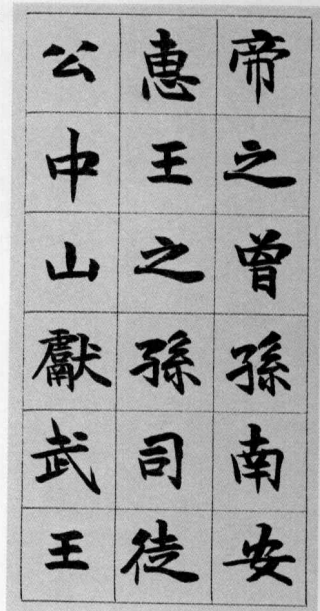 帝之曾孫南安
惠王之孫司徒
公中山獻武王